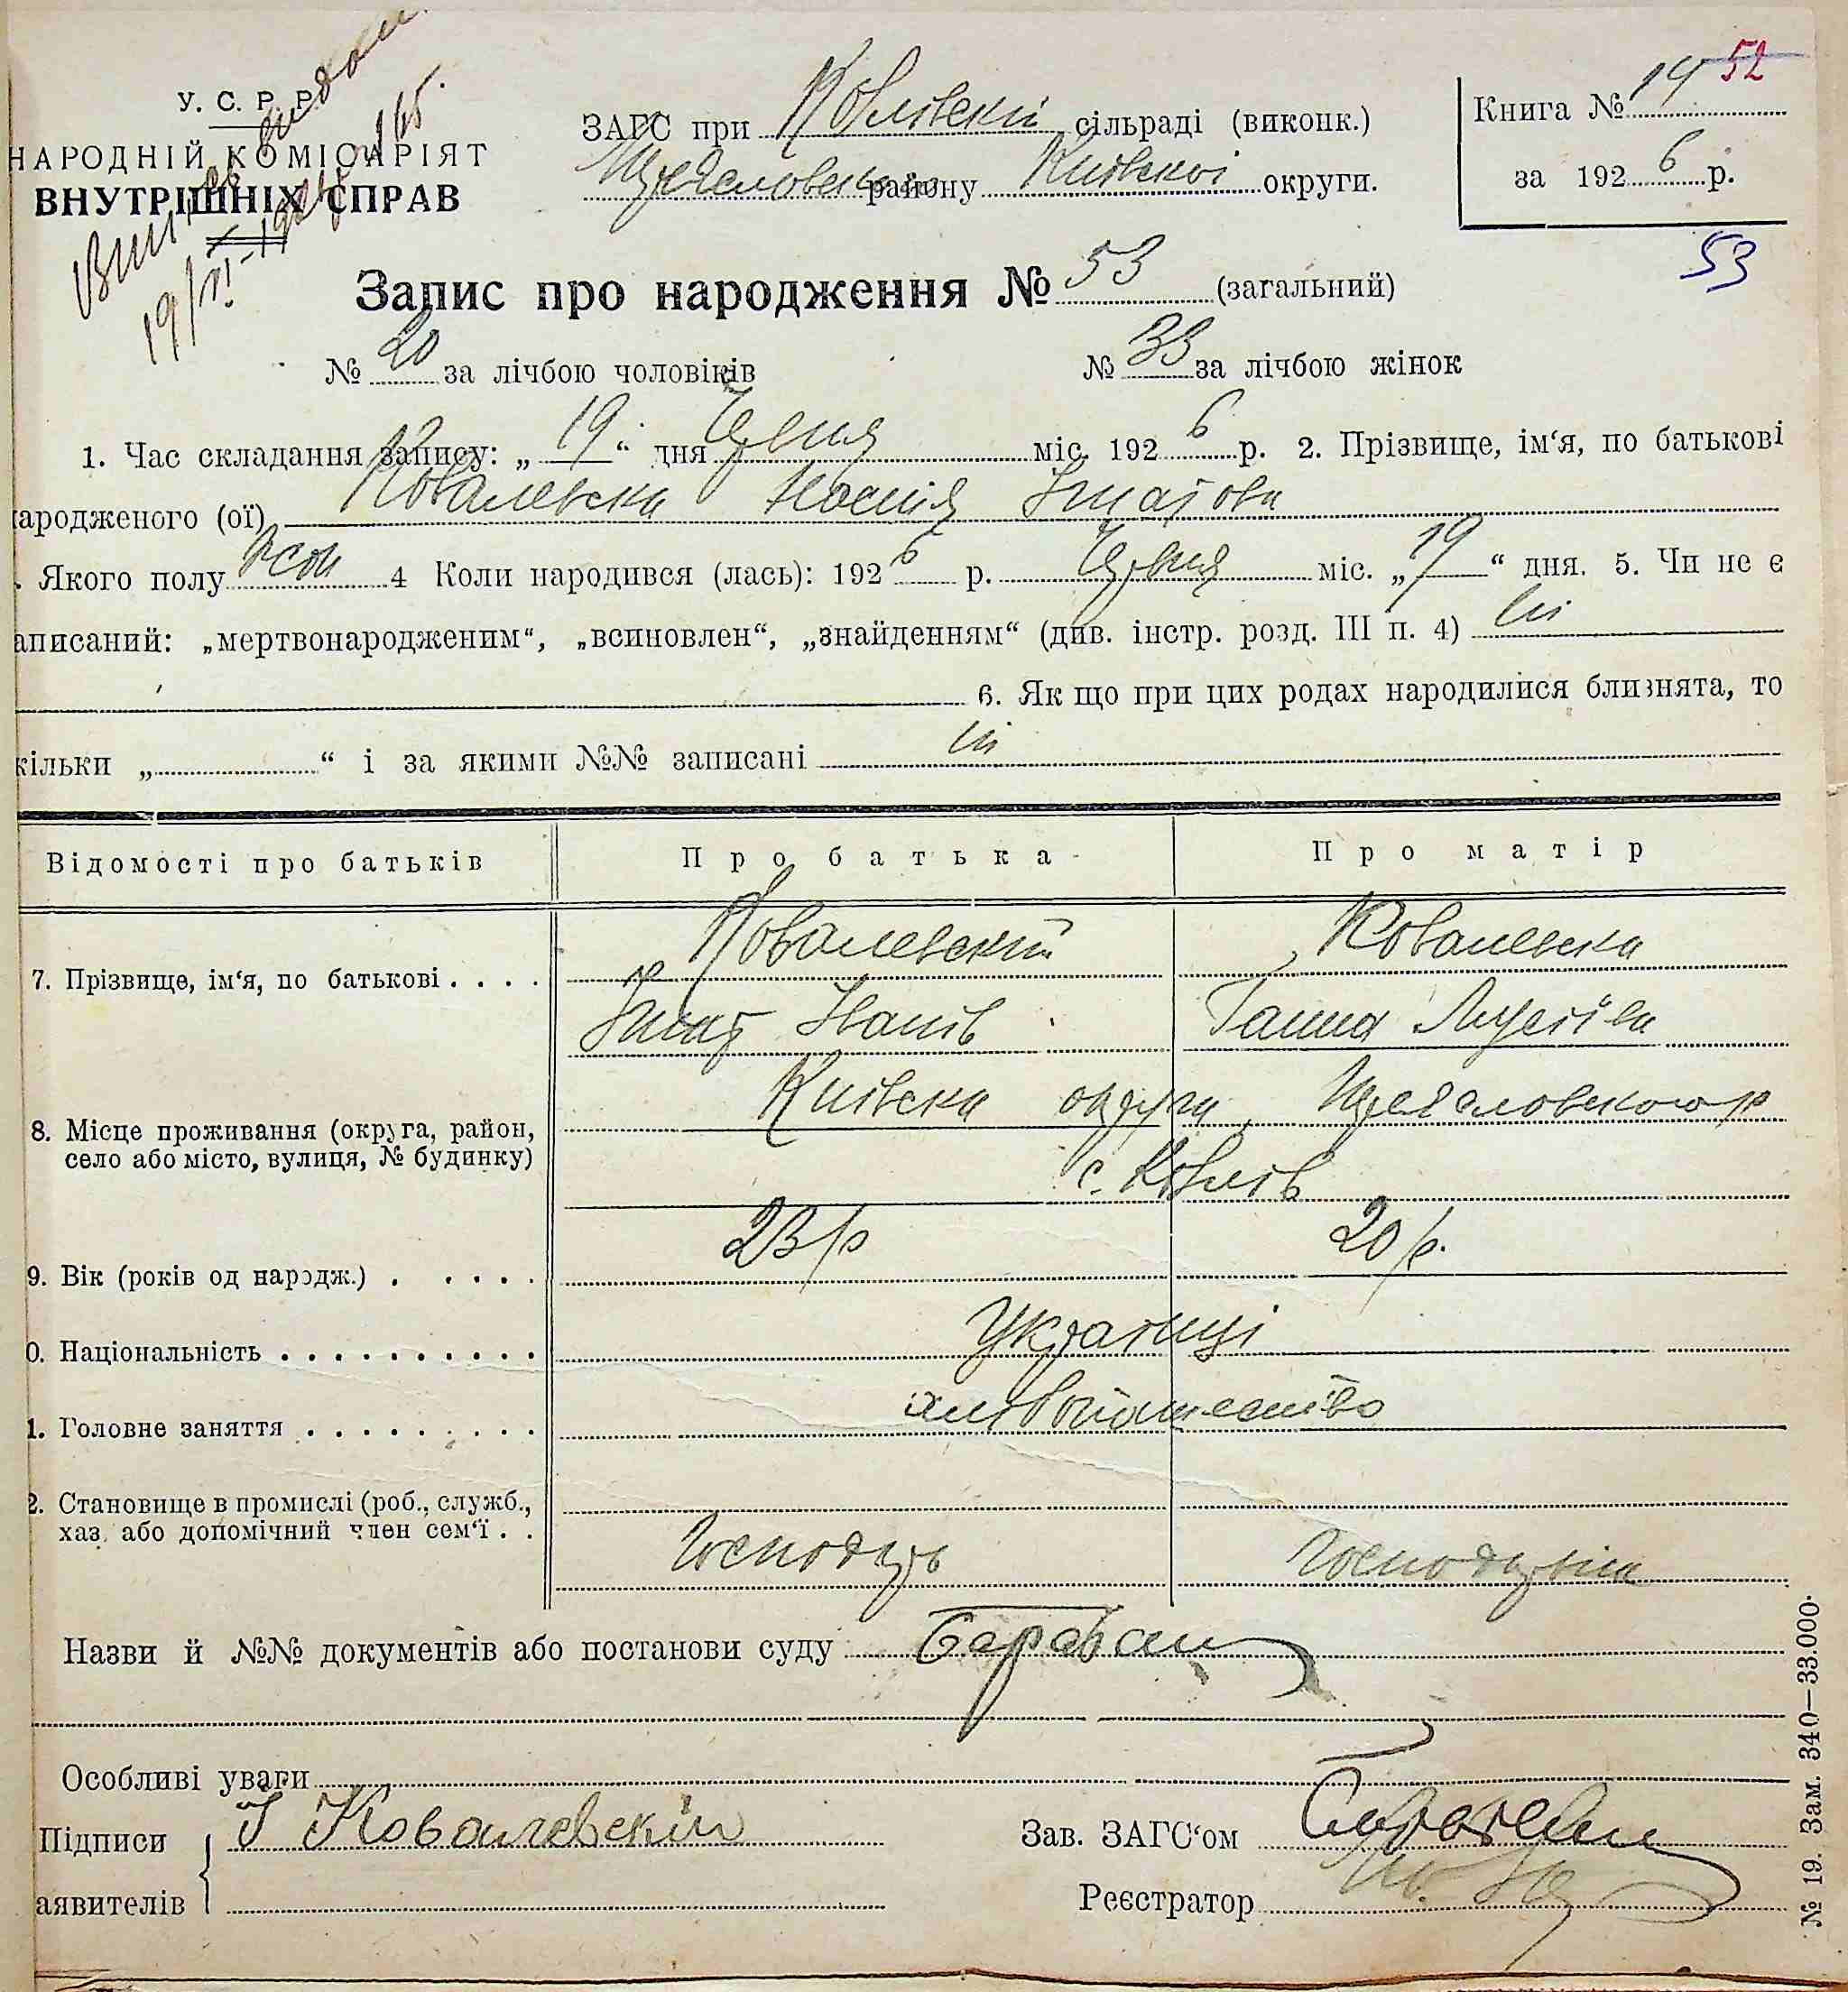 У. С. Р. Р.
НАРОДНІЙ КОМІСАРІЯТ
ВНУТРІШНІХ СПРАВ
ЗАГС при Ковлівскі сільраді (виконк.)
району Київскої округи.
Книга № 19 52
за 1926 р.
53
Запис про народження № 53 (загальний)
№ 20 за лічбою чоловіків № 33 за лічбою жінок
1. Час складання запису: „ 19 “ дня Червня міс. 1926 р. 2. Прізвище, ім‘я, по батькові
ародженого (ої) Ковалевска Настія Ігнатова
. Якого полу жон 4 Коли народився (лась): 1926 р. Червня міс. „ 19 “ дня. 5. Чи не є
аписаний: „мертвонародженим“, „всиновлен“, „знайденням“ (див. інстр. розд. III п. 4) ні
6. Як що при цих родах народилися близнята, то
кільки „ “ і за якими №№ записані ні
Відомості про батьків Про батька Про матір
7. Прізвище, ім‘я, по батькові . . . . Ковалевский Ковалевска
Ігнат Іванів Ганна
8. Місце проживання (округа, район, село або місто, вулиця, № будинку) Київска округа,
с. Ковлів
9. Вік (років од народж.) . . . . . 23 р 20 р.
0. Національність . . . . . . . . . . Українці
1. Головне заняття . . . . . . . . . хлібопашество
2. Становище в промислі (роб., служб., хаз. або допомічний член сем‘ї . . Господарь Господарька
Назви й №№ документів або постанови суду Барабан
Особливі уваги
Підписи І Ковалевскій Зав. ЗАГС‘ом
аявителів Реєстратор
№ 19. Зам. 340—33.000.